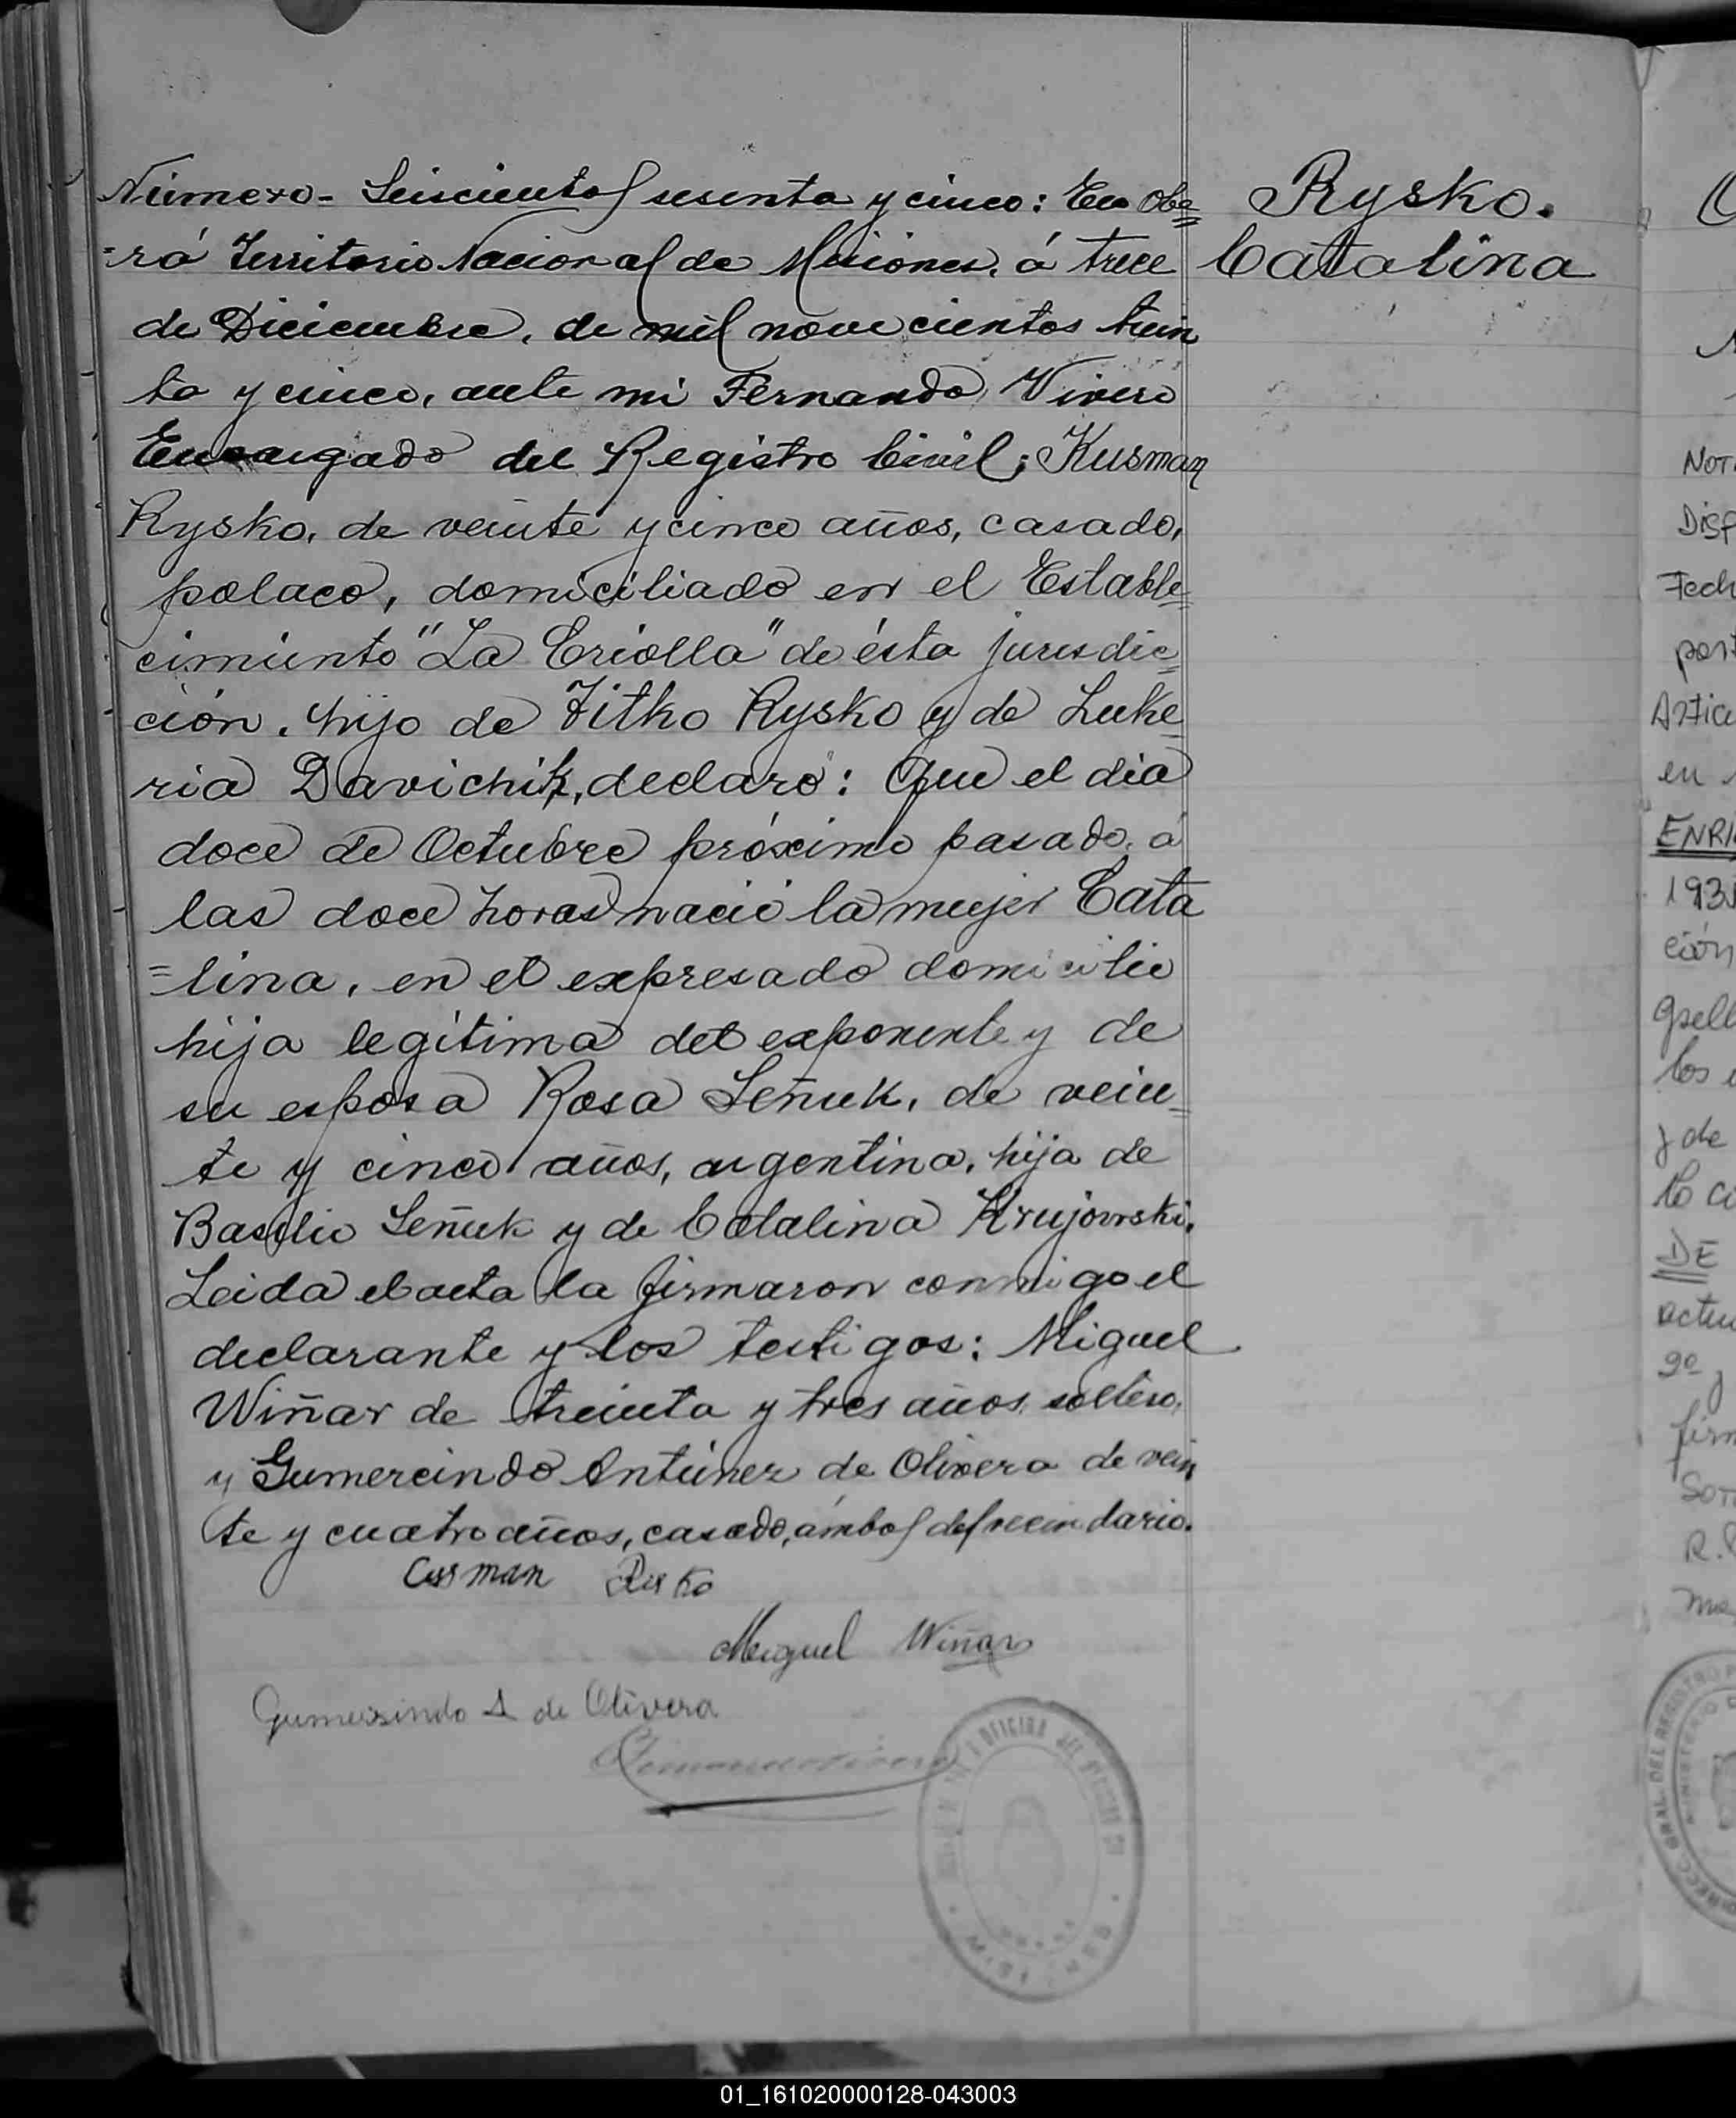 Número - Seiscientos sesenta y cinco: En Obe=
=rá Territorio Nacional de Misiones, á trece
de Diciembre, de mil novecientos trein
ta y cinco, ante mi Fernando Vivero
Encargado del Registro Civil; Kusman
Rysko, de veinte y cinco años, casado,
polaco, domiciliado en el Estable=
cimiento "La Criolla" de ésta jurisdic=
ción, hijo de Titko Rysko y de Luke=
ria Davichik, declaró: Que el día
doce de Octubre próximo pasado, á
las doce horas nació la mujer Cata
=lina, en el expresado domicilio
hija legítima del exponente y de
su esposa Rosa Señuk, de vein=
te y cinco años, argentina, hija de
Basilio Señuk y de Catalina Krujovski.
Leida el acta la firmaron conmigo el
declarante y los testigos: Miguel
Wiñar de treinta y tres años, soltero,
y Gumercindo Antúnez de Olivera de vein
te y cuatro años, casado, ámbos del vecindario.
Cusman Risko
Miguel Wiñar
Gumersindo A de Olivera
Rysko.
Catalina
NOT
Disp
Fech
post
Artic
en
ENRI
193
ción
los
y de
DE
actu
2º y
firm
MISIONES
01_161020000128-043003